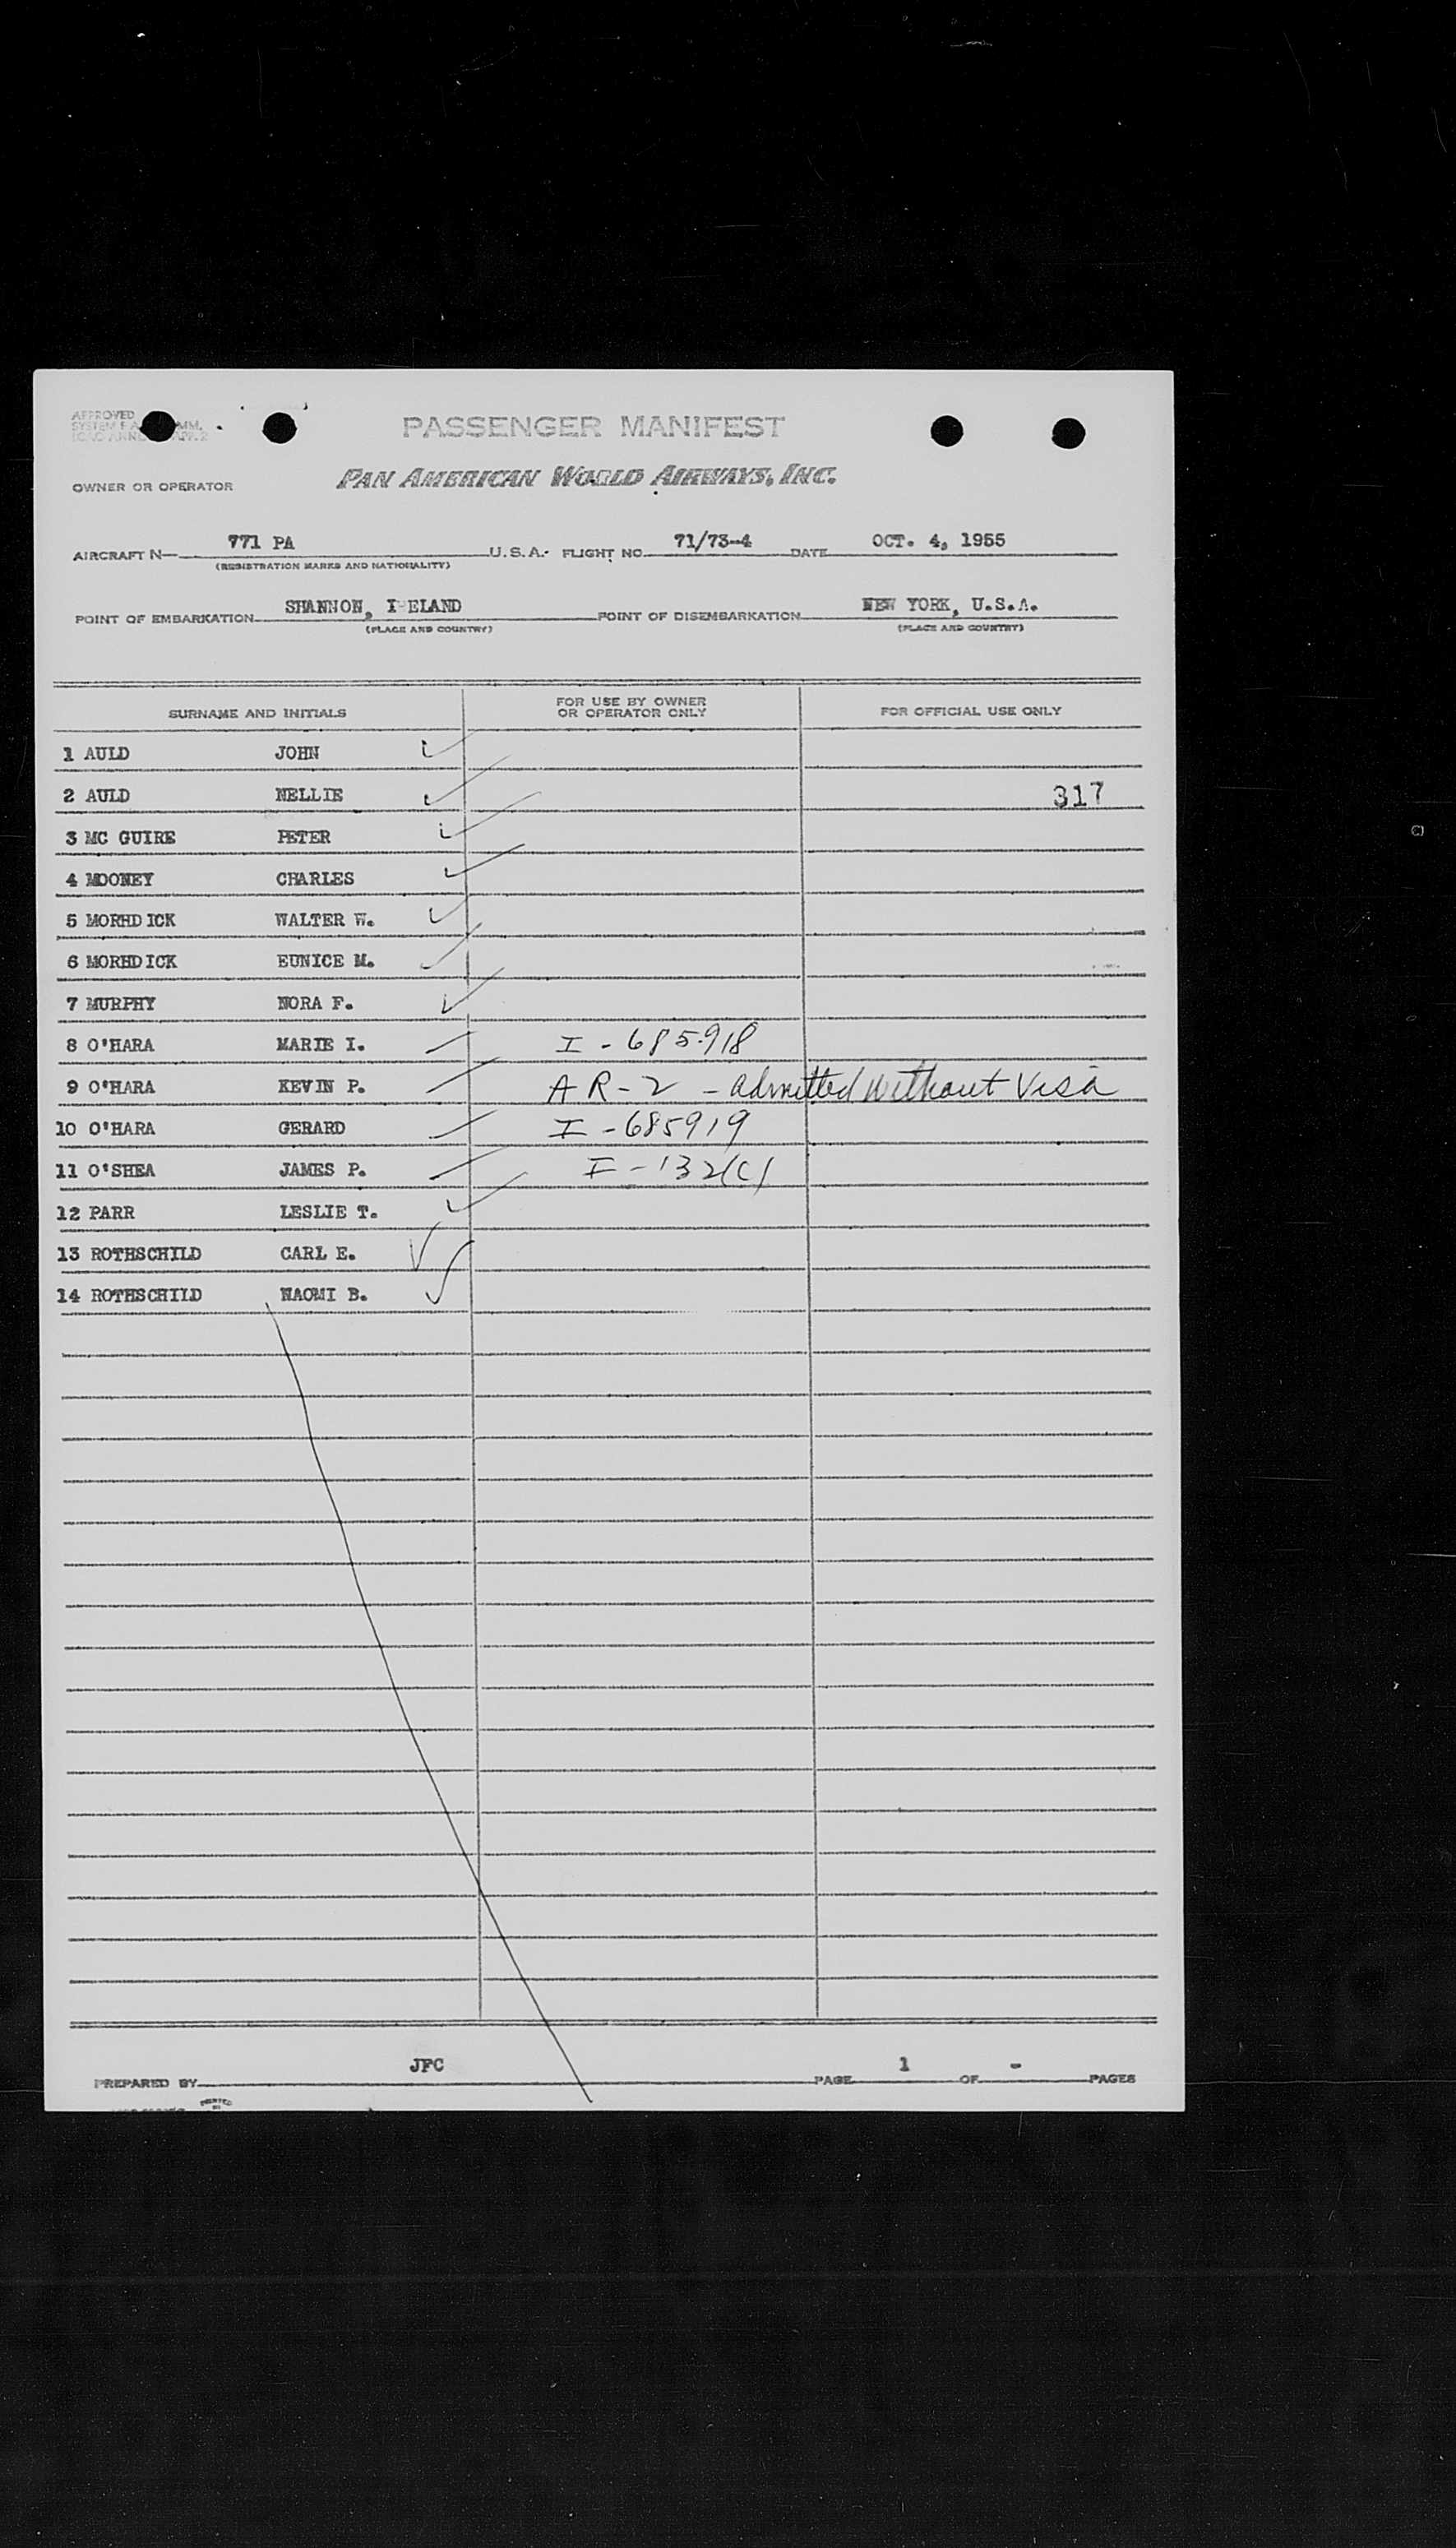 APPROVED
PASSENGER MANIFEST
OWNER OR OPERATOR PAN AMERICAN WORLD AIRWAYS, INC.
AIRCRAFT N— 771 PA U.S.A. FLIGHT NO. 71/73-4 DATE OCT. 4, 1955
(REGISTRATION MARKS AND NATIONALITY)
POINT OF EMBARKATION SHANNON, I ELAND POINT OF DISEMBARKATION NEW YORK, U.S.A.
(PLACE AND COUNTRY) (PLACE AND COUNTRY)
SURNAME AND INITIALS FOR USE BY OWNER OR OPERATOR ONLY FOR OFFICIAL USE ONLY
1 AULD JOHN
2 AULD NELLIE 317
3 MC GUIRE PETER
4 MOONEY CHARLES
5 MORHDICK WALTER W.
6 MORHDICK EUNICE M.
7 MURPHY NORA F.
8 O'HARA MARIE I. I - 685918
9 O'HARA KEVIN P. AR-2 - admitted without Visa
10 O'HARA GERARD I - 685919
11 O'SHEA JAMES P. I - 132(C)
12 PARR LESLIE T.
13 ROTHSCHILD CARL E.
14 ROTHSCHILD NAOMI B.
PREPARED BY JFC PAGE 1 OF - PAGES
PRINTED